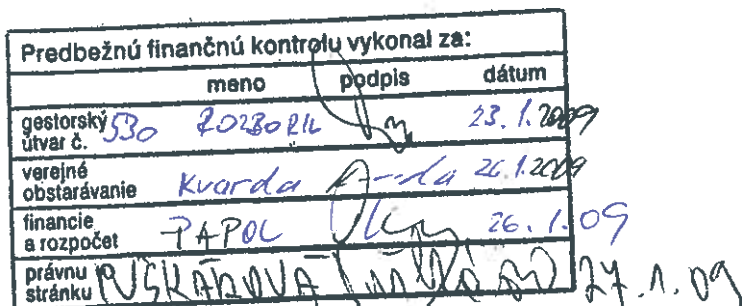 Predbežnú finančnú kontrolu vykonal za:
meno podpis dátum
gestorský útvar č. 530 ROZBORIL 23.1.2009
verejné obstarávanie Kvarda 26.1.2009
financie a rozpočet PAPOL 26.1.09
právnu stránku PUŠKÁROVÁ 27.1.09